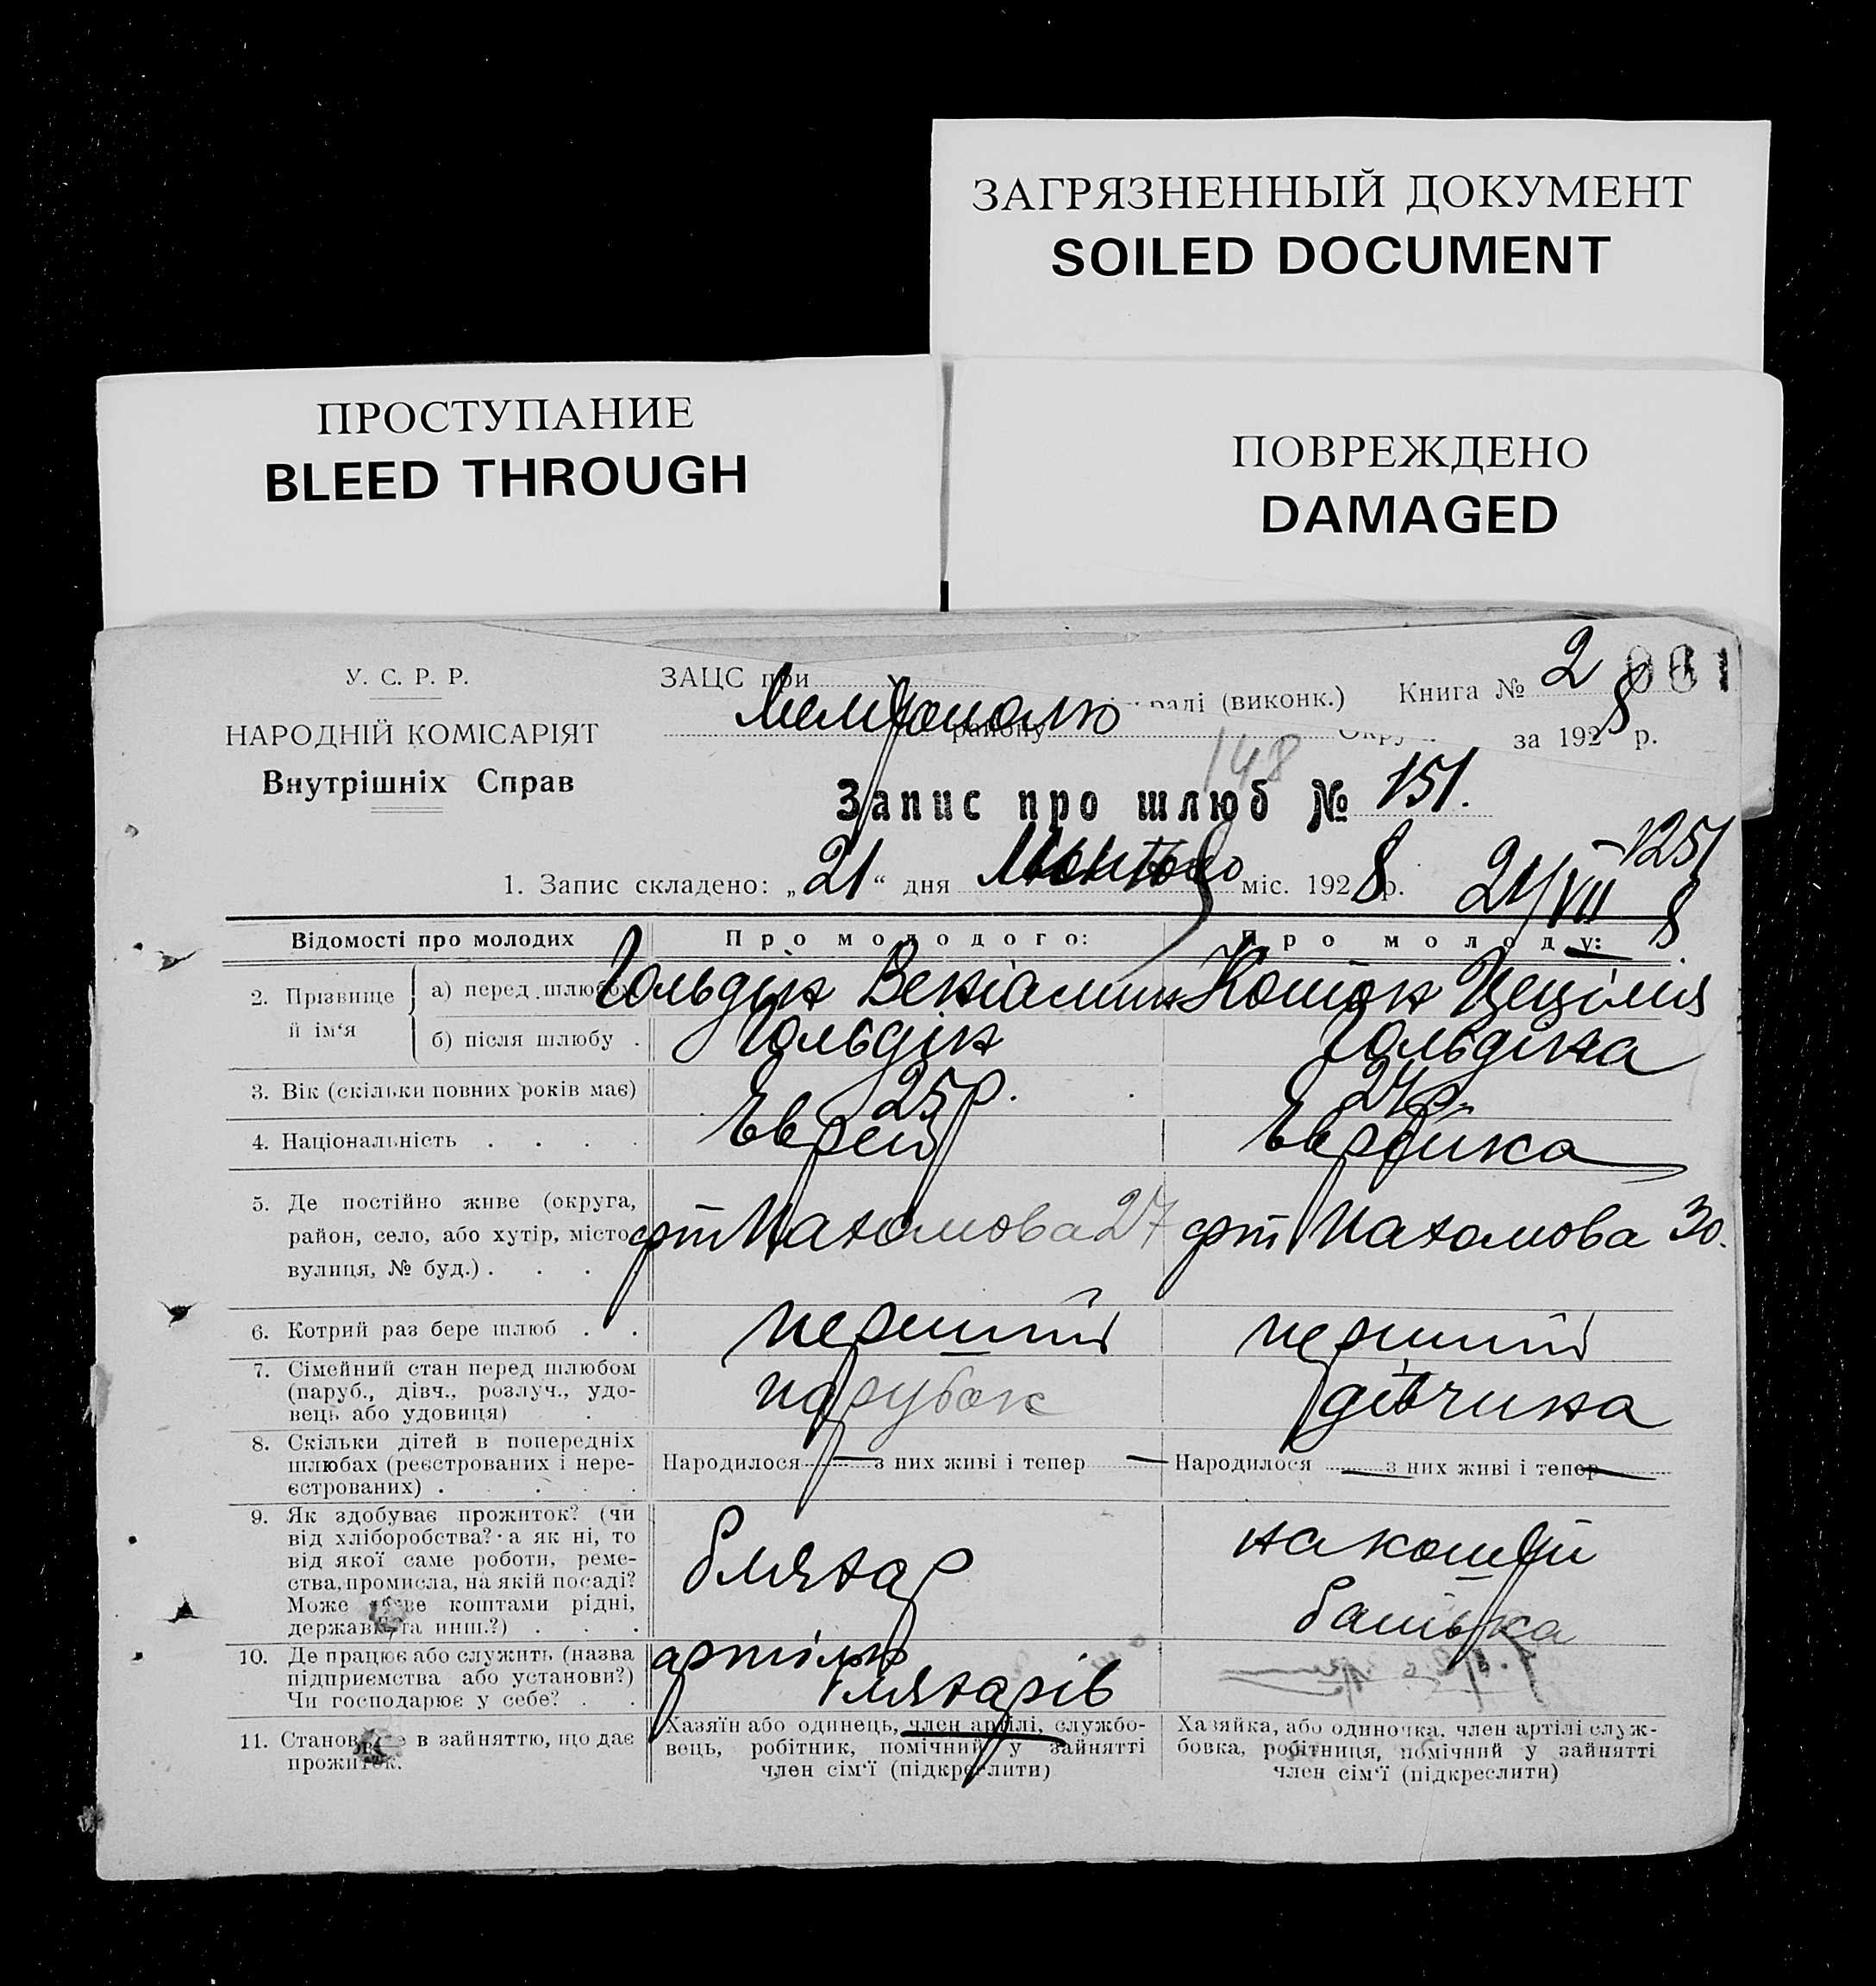 ЗАГРЯЗНЕННЫЙ ДОКУМЕНТ
SOILED DOCUMENT
ПРОСТУПАНИЕ
BLEED THROUGH
ПОВРЕЖДЕНО
DAMAGED
У. С. Р. Р.
НАРОДНІЙ КОМІСАРІЯТ
Внутрішніх Справ
ЗАЦС при
раді (виконк.) Книга № 2
району за 1928 р.
148
Запис про шлюб № 151.
1251
1. Запис складено: „21“ дня міс. 1928 р. 21/VII 8
Відомості про молодих Про молодого: Про молоду:
2. Прізвище й ім‘я
а) перед шлюбом Гольдін Веніамин Цецілия
б) після шлюбу . Гольдін Гольдіна
3. Вік (скільки повних років має) 25 р. 24 р.
4. Національність . . . . Еврей Еврейка
5. Де постійно живе (округа,
район, село, або хутір, місто,
вулиця, № буд.) . . . . Пахомова 27 Пахомова 30.
6. Котрий раз бере шлюб . . перший перший
7. Сімейний стан перед шлюбом
(паруб., дівч., розлуч., удо-
вець або удовиця) . парубок дівчина
8. Скільки дітей в попередніх
шлюбах (реєстрованих і нере-
єстрованих) . . . .
Народилося — з них живі і тепер — Народилося — з них живі і тепер —
9. Як здобуває прожиток? (чи
від хліборобства? а як ні, то
від якої саме роботи, реме-
ства, промисла, на якій посаді?
Може живе коштами рідні,
держави та инш.?) . . .
бляхар
на кошти
батька
10. Де працює або служить (назва
підприємства або установи?)
Чи господарює у себе? . .
артіль
бляхарів
11. Становище в зайняттю, що дає
прожиток.
Хазяїн або одинець, член артілі, службо-
вець, робітник, помічний у зайнятті
член сім‘ї (підкреслити)
Хазяйка, або одиночка, член артілі служ-
бовка, робітниця, помічний у зайнятті
член сім‘ї (підкреслити)